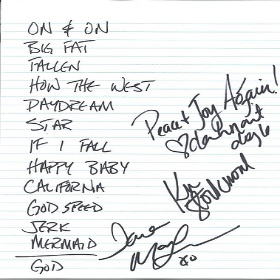 ON & ON
BIG FAT
FALLEN
HOW THE WEST
DAYDREAM
STAR
IF I FALL
HAPPY BABY
CALIFORNIA
GODSPEED
JERK
MERMAID
GOD
Peace & Joy Again!